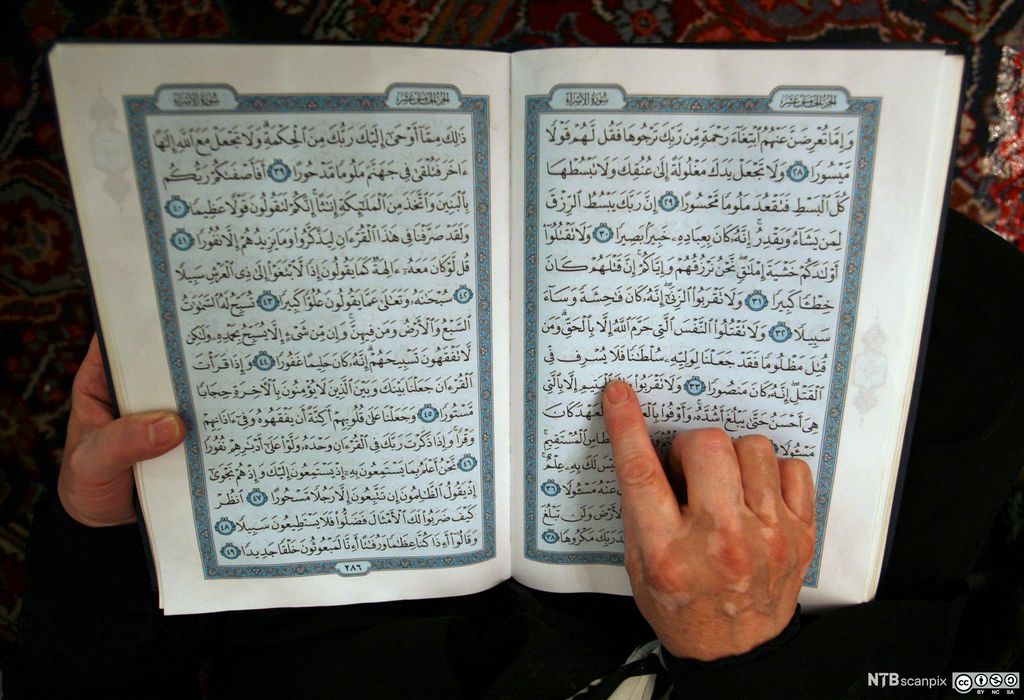 الجزء الخامس عشر
سورة الإسراء
وَإِمَّا تُعْرِضَنَّ عَنْهُمُ ٱبْتِغَآءَ رَحْمَةٍ مِّن رَّبِّكَ تَرْجُوهَا فَقُل لَّهُمْ قَوْلًا
مَّيْسُورًا ٢٨ وَلَا تَجْعَلْ يَدَكَ مَغْلُولَةً إِلَىٰ عُنُقِكَ وَلَا تَبْسُطْهَا
كُلَّ ٱلْبَسْطِ فَتَقْعُدَ مَلُومًا مَّحْسُورًا ٢٩ إِنَّ رَبَّكَ يَبْسُطُ ٱلرِّزْقَ
لِمَن يَشَآءُ وَيَقْدِرُ إِنَّهُۥ كَانَ بِعِبَادِهِۦ خَبِيرًۢا بَصِيرًا ٣٠ وَلَا تَقْتُلُوٓا۟
أَوْلَٰدَكُمْ خَشْيَةَ إِمْلَٰقٍ نَّحْنُ نَرْزُقُهُمْ وَإِيَّاكُمْ إِنَّ قَتْلَهُمْ كَانَ
خِطْـًٔا كَبِيرًا ٣١ وَلَا تَقْرَبُوا۟ ٱلزِّنَىٰٓ إِنَّهُۥ كَانَ فَٰحِشَةً وَسَآءَ
سَبِيلًا ٣٢ وَلَا تَقْتُلُوا۟ ٱلنَّفْسَ ٱلَّتِى حَرَّمَ ٱللَّهُ إِلَّا بِٱلْحَقِّ وَمَن
قُتِلَ مَظْلُومًا فَقَدْ جَعَلْنَا لِوَلِيِّهِۦ سُلْطَٰنًا فَلَا يُسْرِف فِّى
ٱلْقَتْلِ إِنَّهُۥ كَانَ مَنصُورًا ٣٣ وَلَا تَقْرَبُوا۟ ٱلْيَتِيمِ إِلَّا بِٱلَّتِى
هِىَ أَحْسَنُ حَتَّىٰ يَبْلُغَ أَشُدَّهُۥ وَأَوْفُوا۟ ٱلْعَهْدَ كَانَ
مَسْـُٔولًا ٱلْمُسْتَقِيمِ
لَيْسَ لَكَ بِهِۦ عِلْمٌ
عَنْهُ مَسْـُٔولًا ٣٦
ٱلْأَرْضَ وَلَن تَبْلُغَ
رَبِّكَ مَكْرُوهًا ٣٨
الجزء الخامس عشر
سورة الإسراء
ذَٰلِكَ مِمَّآ أَوْحَىٰٓ إِلَيْكَ رَبُّكَ مِنَ ٱلْحِكْمَةِ وَلَا تَجْعَلْ مَعَ ٱللَّهِ إِلَٰهًا
ءَاخَرَ فَتُلْقَىٰ فِى جَهَنَّمَ مَلُومًا مَّدْحُورًا ٣٩ أَفَأَصْفَىٰكُمْ رَبُّكُم
بِٱلْبَنِينَ وَٱتَّخَذَ مِنَ ٱلْمَلَٰٓئِكَةِ إِنَٰثًا إِنَّكُمْ لَتَقُولُونَ قَوْلًا عَظِيمًا ٤٠
وَلَقَدْ صَرَّفْنَا فِى هَٰذَا ٱلْقُرْءَانِ لِيَذَّكَّرُوا۟ وَمَا يَزِيدُهُمْ إِلَّا نُفُورًا ٤١
قُل لَّوْ كَانَ مَعَهُۥٓ ءَالِهَةٌ كَمَا يَقُولُونَ إِذًا لَّٱبْتَغَوْا۟ إِلَىٰ ذِى ٱلْعَرْشِ سَبِيلًا
٤٢ سُبْحَٰنَهُۥ وَتَعَٰلَىٰ عَمَّا يَقُولُونَ عُلُوًّا كَبِيرًا ٤٣ تُسَبِّحُ لَهُ ٱلسَّمَٰوَٰتُ
ٱلسَّبْعُ وَٱلْأَرْضُ وَمَن فِيهِنَّ وَإِن مِّن شَىْءٍ إِلَّا يُسَبِّحُ بِحَمْدِهِۦ وَلَٰكِن
لَّا تَفْقَهُونَ تَسْبِيحَهُمْ إِنَّهُۥ كَانَ حَلِيمًا غَفُورًا ٤٤ وَإِذَا قَرَأْتَ
ٱلْقُرْءَانَ جَعَلْنَا بَيْنَكَ وَبَيْنَ ٱلَّذِينَ لَا يُؤْمِنُونَ بِٱلْءَاخِرَةِ حِجَابًا
مَّسْتُورًا ٤٥ وَجَعَلْنَا عَلَىٰ قُلُوبِهِمْ أَكِنَّةً أَن يَفْقَهُوهُ وَفِىٓ ءَاذَانِهِمْ
وَقْرًا وَإِذَا ذَكَرْتَ رَبَّكَ فِى ٱلْقُرْءَانِ وَحْدَهُۥ وَلَّوْا۟ عَلَىٰٓ أَدْبَٰرِهِمْ نُفُورًا
٤٦ نَّحْنُ أَعْلَمُ بِمَا يَسْتَمِعُونَ بِهِۦٓ إِذْ يَسْتَمِعُونَ إِلَيْكَ وَإِذْ هُمْ نَجْوَىٰٓ
إِذْ يَقُولُ ٱلظَّٰلِمُونَ إِن تَتَّبِعُونَ إِلَّا رَجُلًا مَّسْحُورًا ٤٧ ٱنظُرْ
كَيْفَ ضَرَبُوا۟ لَكَ ٱلْأَمْثَالَ فَضَلُّوا۟ فَلَا يَسْتَطِيعُونَ سَبِيلًا ٤٨
وَقَالُوٓا۟ أَءِذَا كُنَّا عِظَٰمًا وَرُفَٰتًا أَءِنَّا لَمَبْعُوثُونَ خَلْقًا جَدِيدًا ٤٩
٢٨٦
NTB scanpix
cc BY NC SA